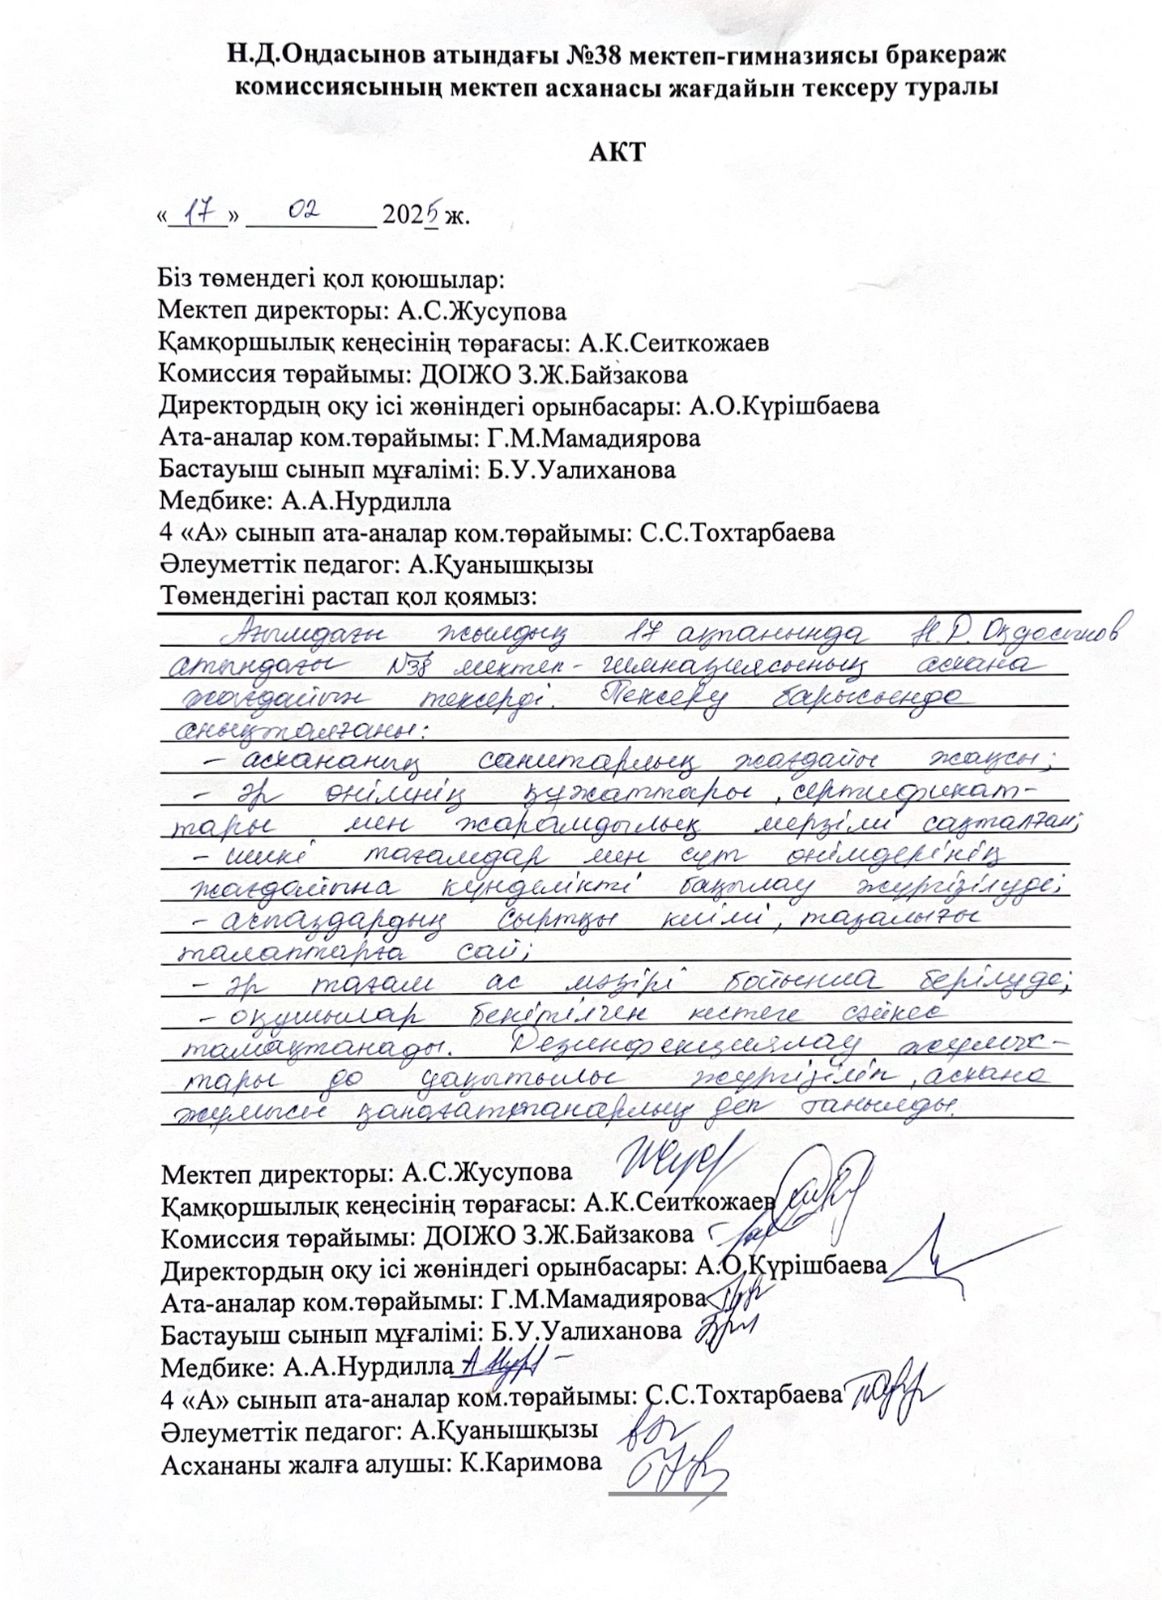 Н.Д.Оңдасынов атындағы №38 мектеп-гимназиясы бракераж
комиссиясының мектеп асханасы жағдайын тексеру туралы
АКТ
«17» 02 2025 ж.
Біз төмендегі қол қоюшылар:
Мектеп директоры: А.С.Жусупова
Қамқоршылық кеңесінің төрағасы: А.К.Сеиткожаев
Комиссия төрайымы: ДОІЖО З.Ж.Байзакова
Директордың оқу ісі жөніндегі орынбасары: А.О.Күрішбаева
Ата-аналар ком.төрайымы: Г.М.Мамадиярова
Бастауыш сынып мұғалімі: Б.У.Уалиханова
Медбике: А.А.Нурдилла
4 «А» сынып ата-аналар ком.төрайымы: С.С.Тохтарбаева
Әлеуметтік педагог: А.Қуанышқызы
Төмендегіні растап қол қоямыз:
Ағымдағы жылдың 17 ақпанында Н.Д.Оңдасынов
атындағы №38 мектеп-гимназиясының асхана
жағдайын тексерді. Тексеру барысында
анықталғаны:
- асхананың санитарлық жағдайы жақсы;
- әр өнімнің құжаттары, сертификат-
тары мен жарамдылық мерзімі сақталған;
- шикі тағамдар мен сүт өнімдерінің
жағдайына күнделікті бақылау жүргізілуде;
- аспаздардың сыртқы киімі, тазалығы
талаптарға сай;
- әр тағам ас мәзірі бойынша берілуде;
- оқушылар бекітілген кестеге сәйкес
тамақтанады. Дезинфекциялау жұмыс-
тары да уақытылы жүргізіліп, асхана
жұмысы қанағаттанарлық деп танылды.
Мектеп директоры: А.С.Жусупова
Қамқоршылық кеңесінің төрағасы: А.К.Сеиткожаев
Комиссия төрайымы: ДОІЖО З.Ж.Байзакова
Директордың оқу ісі жөніндегі орынбасары: А.О.Күрішбаева
Ата-аналар ком.төрайымы: Г.М.Мамадиярова
Бастауыш сынып мұғалімі: Б.У.Уалиханова
Медбике: А.А.Нурдилла
4 «А» сынып ата-аналар ком.төрайымы: С.С.Тохтарбаева
Әлеуметтік педагог: А.Қуанышқызы
Асхананы жалға алушы: К.Каримова